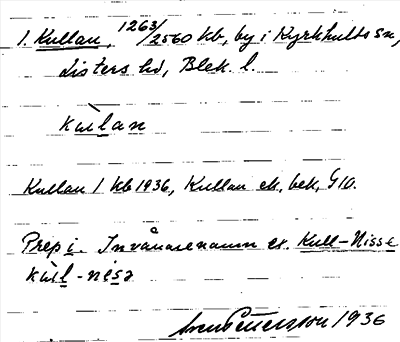 1. Kullan, 1263/2560 kb, by i Kyrkhults sn,
Listers hd, Blek. l.
kùlan
Kullan 1 kb 1936, Kullan ek. bek. G10.
Prep i. Invånarenamn ex. Kull-Nisse
kùl-nisə
1936